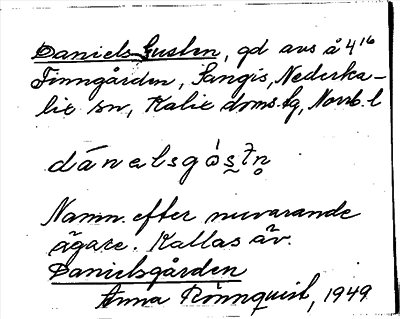 Daniels-Gusten, gd avs å 4¹⁶
Finngården, Sangis, Nederka-
lix sn, Kalix doms. tg, Norrb. l
dánelsgòstn̥
Namn efter nuvarande
ägare. Kallas äv.
Danielsgården
Anna Rönnquist, 1949